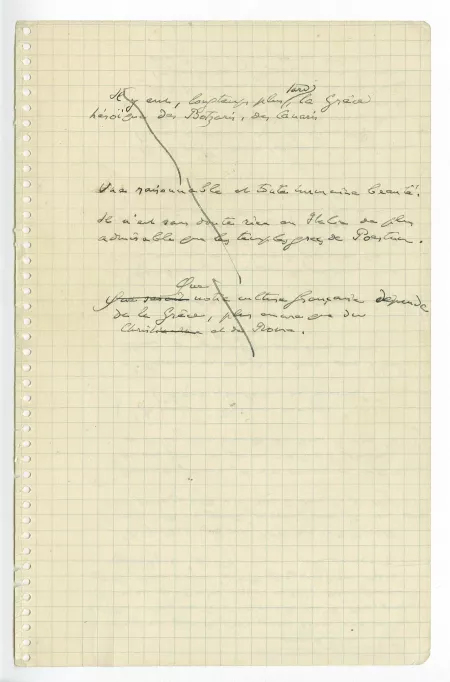 Il y eut, longtemps plus tard, la Grèce
héroïque des Botzaris, des Canaris
Une raisonnable et toute humaine beauté.
Il n'est sans doute rien en Italie de plus
admirable que les temples grecs de Poestum.
Que
notre culture française dépende
de la Grèce, plus encore que du
Christ et de Rome.